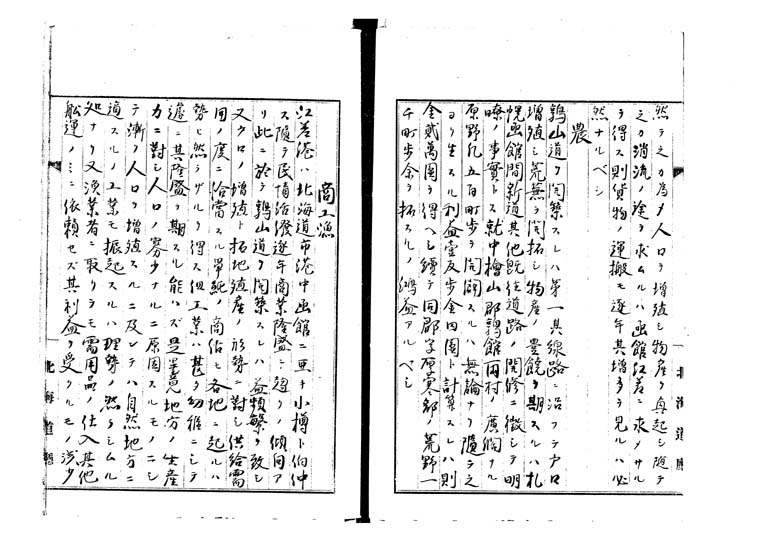 然ラ之カ為メ人口ヲ増殖シ物産ヲ興起シ随テ
之カ消流ノ途ヲ求ムルハ函館江差ニ求メサル
ヲ得ス則貨物ノ運搬モ逐年其増多ヲ見ルハ必
然ナルベシ
農
鶉山道ヲ開築スレハ第一其線路ニ沿フテ戸口
増殖シ荒蕪ヲ開拓シ物産ノ豊饒ヲ期スルハ札
幌函館間新道其他既往道路ノ開修ニ徴シテ明
瞭ノ事実トス就中檜山郡鶉館両村ノ広濶ナル
原野凡五百町歩ヲ開闢スルハ無論ナリ随テ之
ヨリ生スル利益壹反歩金四円ト計算スレハ則
金貳萬円ヲ得ヘシ続テ同郡字厚寒部ノ荒野一
千町歩余ヲ拓スルノ鴻益アルベシ
北海道庁
商工漁
江差港ハ北海道市港中函館ニ亜キ小樽ト伯仲
ス随テ民情活潑逐年商業隆盛ニ趨クノ傾向ア
リ此ニ於テ鶉山道ヲ開築スレハ益頻繁ヲ致シ
又戸口ノ増殖ト拓地殖産ノ形勢ニ対シ供給需
用ノ度ニ合当スル単純ノ商估モ各地ニ起ルハ
勢ヒ然ラサルヲ得ス但工業ハ甚タ幼稚ニシテ
遽ニ其隆盛ヲ期スル能ハズ是畢竟地方ノ生産
力ニ対シ人口ノ寡少ナルニ原因スルモノニシ
テ漸ク人口ヲ増殖スルニ及ンテハ自然地方ニ
適スルノ工業モ振起スルハ理勢ノ然ラシムル
処ナリ又漁業者ニ取リテモ需用品ノ仕入其他
船運ノミニ依頼セズ其利益ヲ受クルモノ渉ク
北海道庁